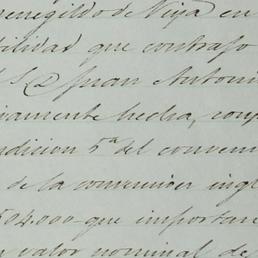 enegildo de Niya en
ilidad que contrajo
Juan Antoni
amente hecha, conf
ndicion 5ª del conveni
de la convencion ingl
504.000 que importan
valor nominal de